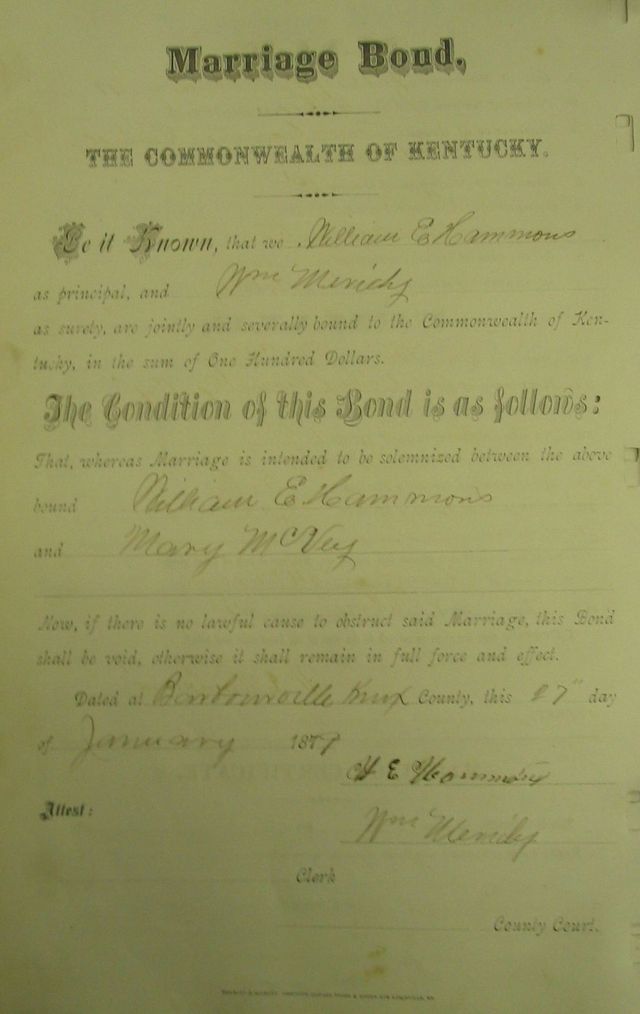 Marriage Bond.
THE COMMONWEALTH OF KENTUCKY.
Be it Known, that we William E Hammons
as principal, and Wm
as surety, are jointly and severally bound to the Commonwealth of Ken-
tucky, in the sum of One Hundred Dollars.
The Condition of this Bond is as follows:
That, whereas Marriage is intended to be solemnized between the above
bound William E Hammons
and Mary McVey
Now, if there is no lawful cause to obstruct said Marriage, this Bond
shall be void, otherwise it shall remain in full force and effect.
Dated at Barbourville Knox County, this 27" day
of January
W E Hammons
Attest:
Wm
Clerk
County Court.